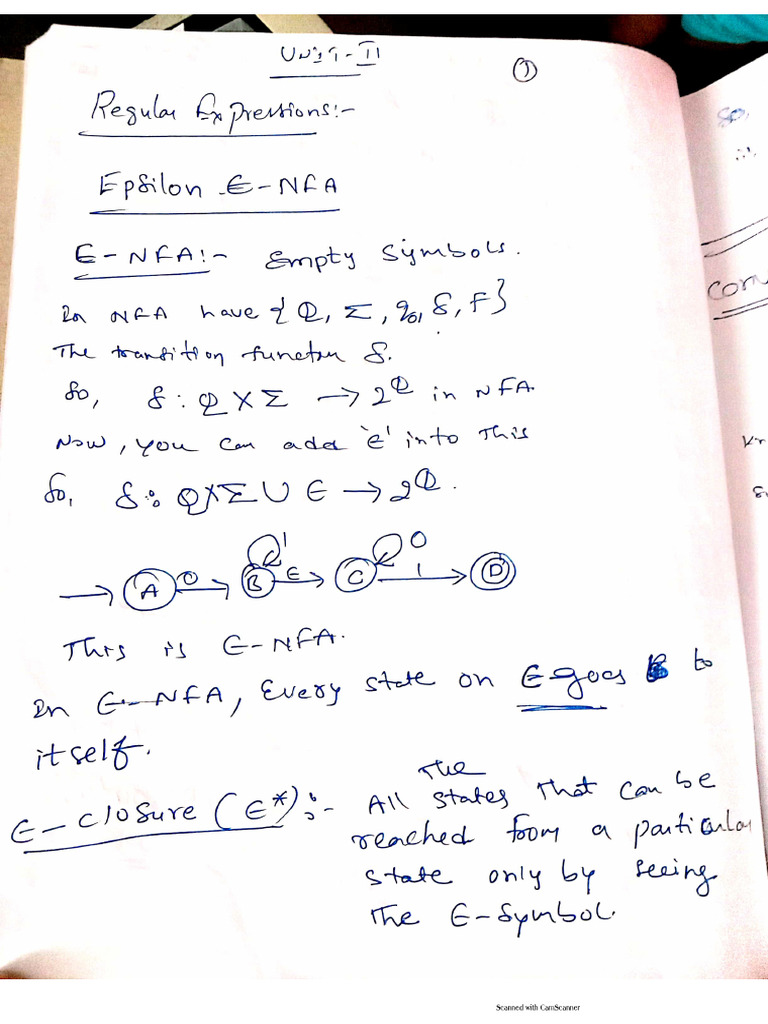 Unit-II
①
Regular Expressions:-
Epsilon ∈-NFA
∈-NFA:- Empty Symbols.
In NFA have {Q, Σ, q₀, δ, F}
The transition function δ.
So, δ: Q X Σ → 2^Q in NFA.
Now, you can add '∈' into This
So, δ: QXΣ ∪ ∈ → 2^Q.
1 0
A 0 B ∈ C 1 D
This is ∈-NFA.
In ∈-NFA, Every state on ∈ goes to
itself.
The
∈-closure (∈*):- All states That can be
reached from a particular
state only by seeing
the ∈-Symbol.
So,
∴
Scanned with CamScanner